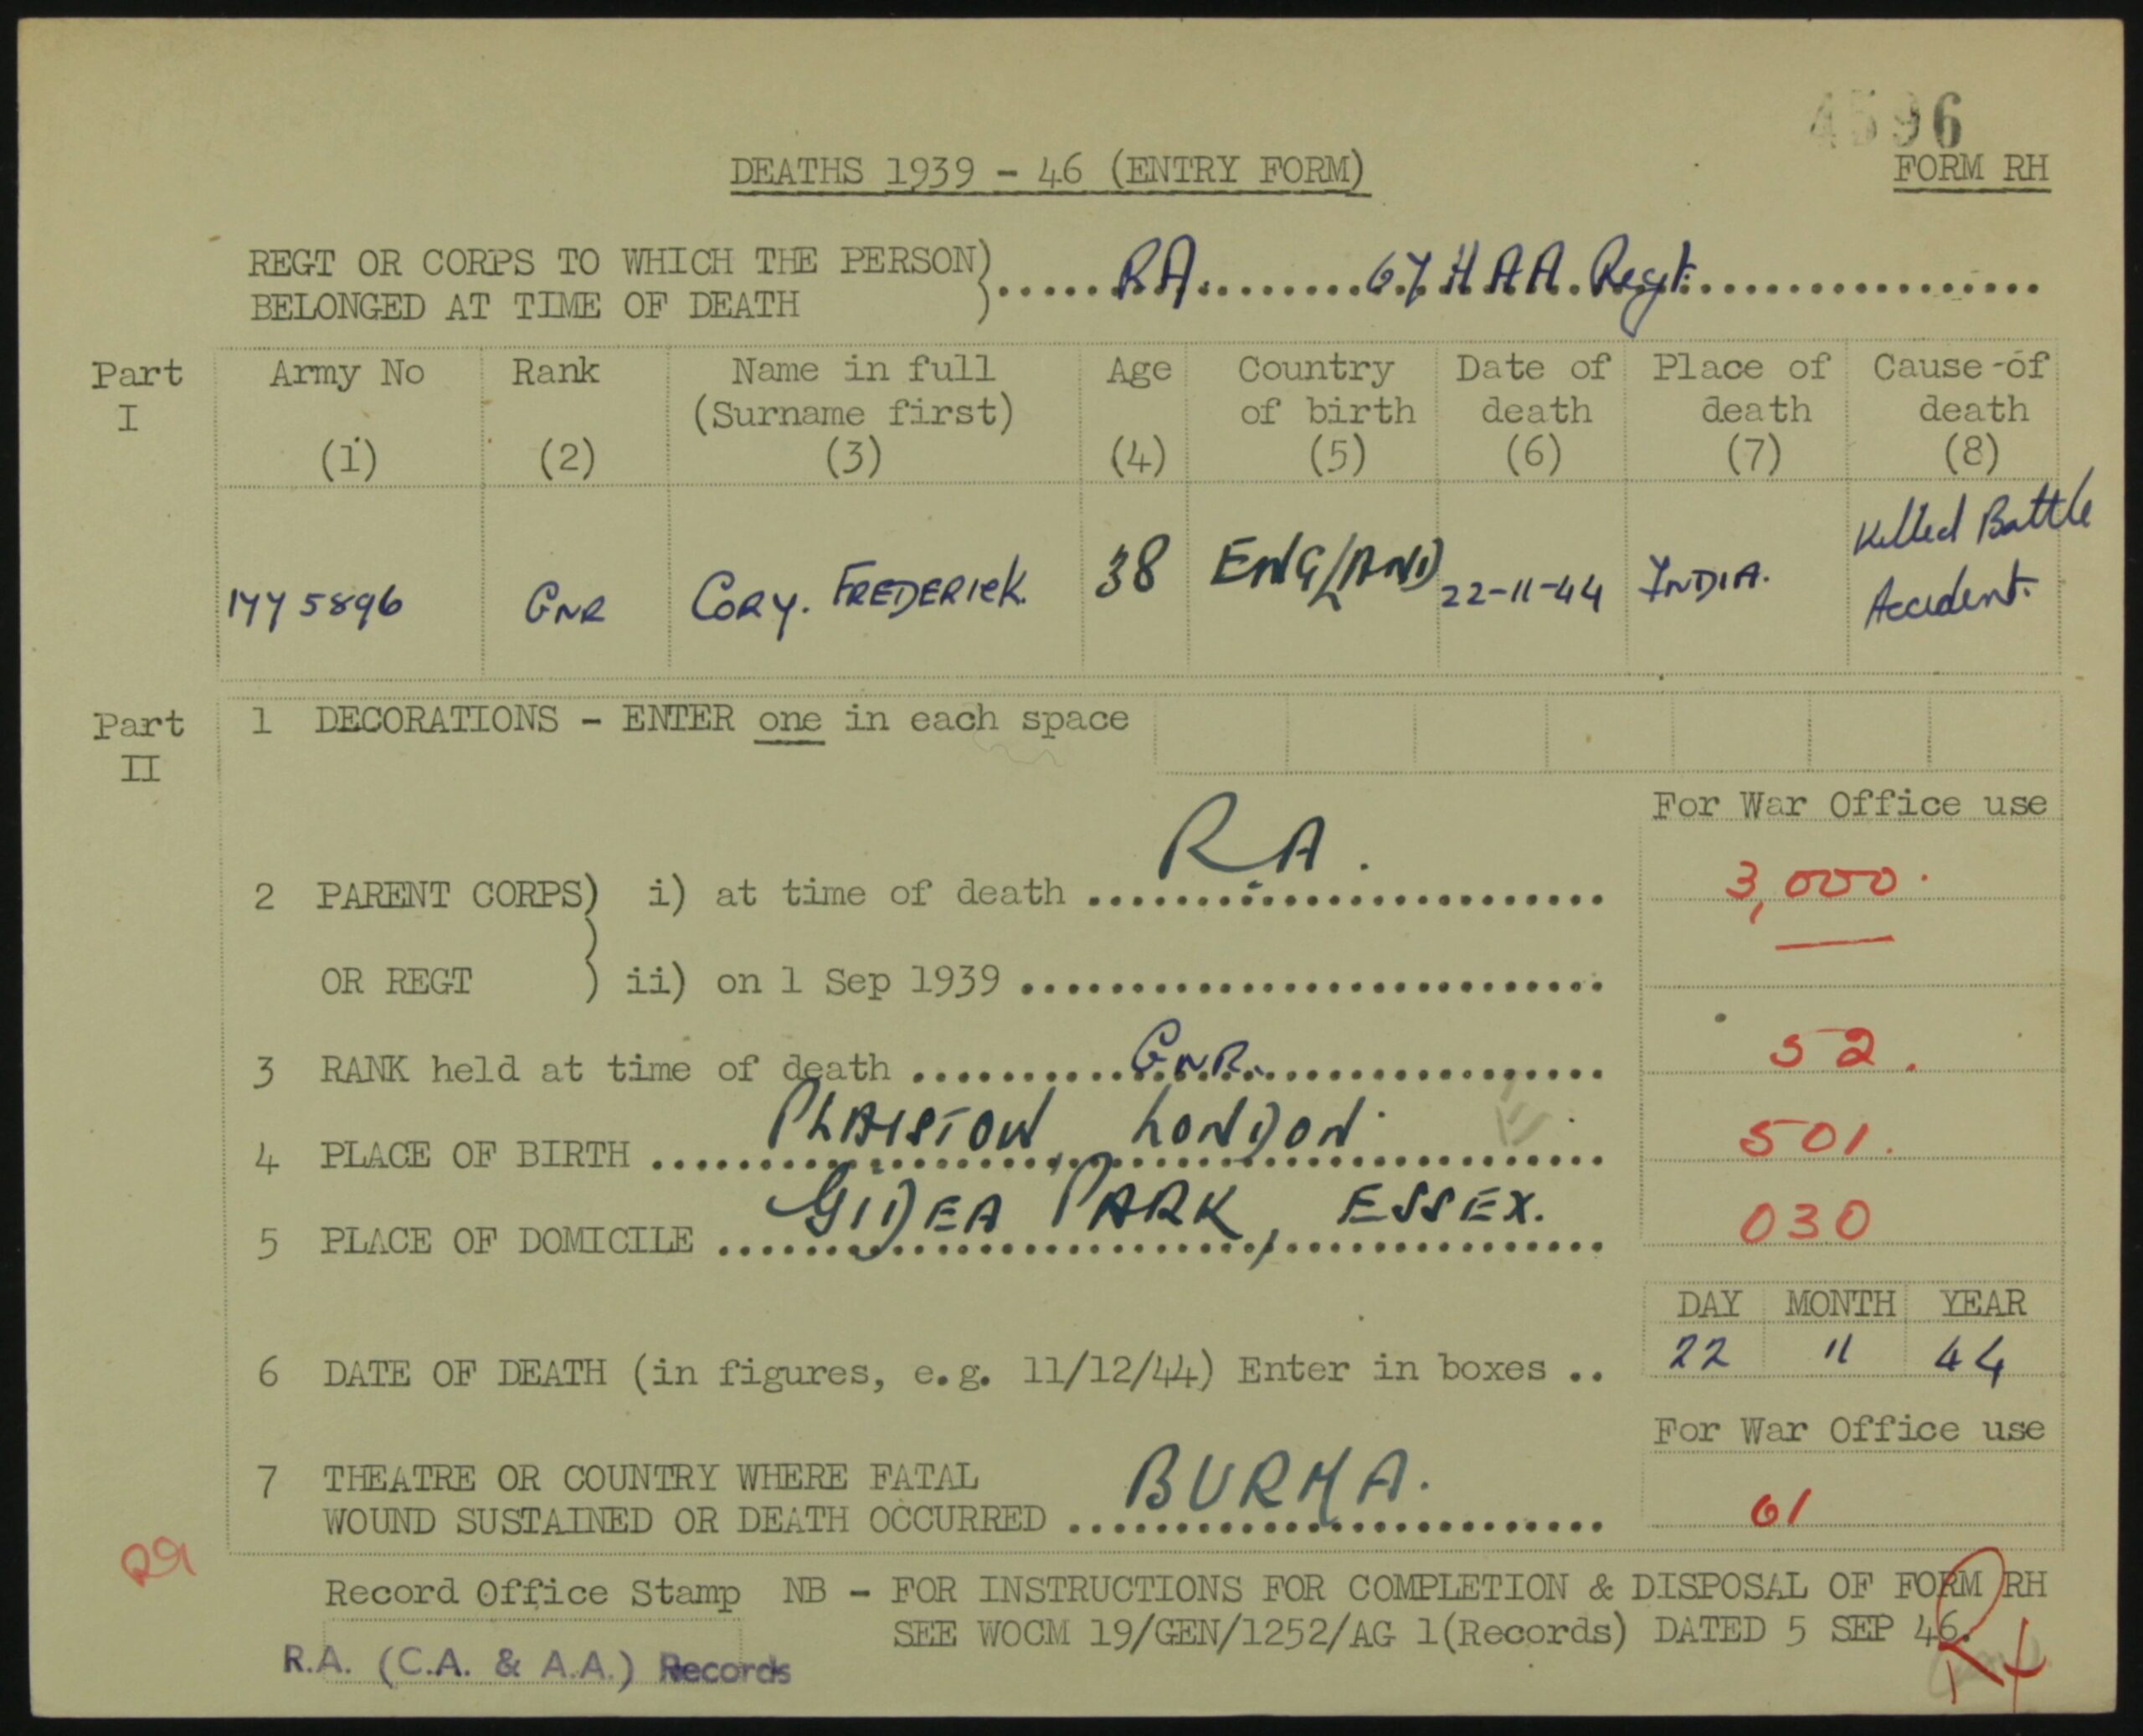 4596
DEATHS 1939 - 46 (ENTRY FORM)
FORM RH
REGT OR CORPS TO WHICH THE PERSON)
BELONGED AT TIME OF DEATH ) ..... RA. ........ 67 HAA Regt. ................
Part I
Army No (1)
Rank (2)
Name in full (Surname first) (3)
Age (4)
Country of birth (5)
Date of death (6)
Place of death (7)
Cause of death (8)
1775896 GNR CORY. FREDERICK. 38 ENGLAND 22-11-44 INDIA. Killed Battle Accident.
Part II
1 DECORATIONS - ENTER one in each space
For War Office use
2 PARENT CORPS) i) at time of death ..... RA. ..... 3,000.
OR REGT ) ii) on 1 Sep 1939 ..........
3 RANK held at time of death ..... GNR. ..... 52.
4 PLACE OF BIRTH ..... PLAISTOW, LONDON. ..... 501.
5 PLACE OF DOMICILE ..... GIDEA PARK, ESSEX. ..... 030
DAY MONTH YEAR
6 DATE OF DEATH (in figures, e.g. 11/12/44) Enter in boxes .. 22 11 44
For War Office use
7 THEATRE OR COUNTRY WHERE FATAL
WOUND SUSTAINED OR DEATH OCCURRED ..... BURMA. ..... 61
Record Office Stamp NB - FOR INSTRUCTIONS FOR COMPLETION & DISPOSAL OF FORM RH
SEE WOCM 19/GEN/1252/AG 1(Records) DATED 5 SEP 46.
R.A. (C.A. & A.A.) Records